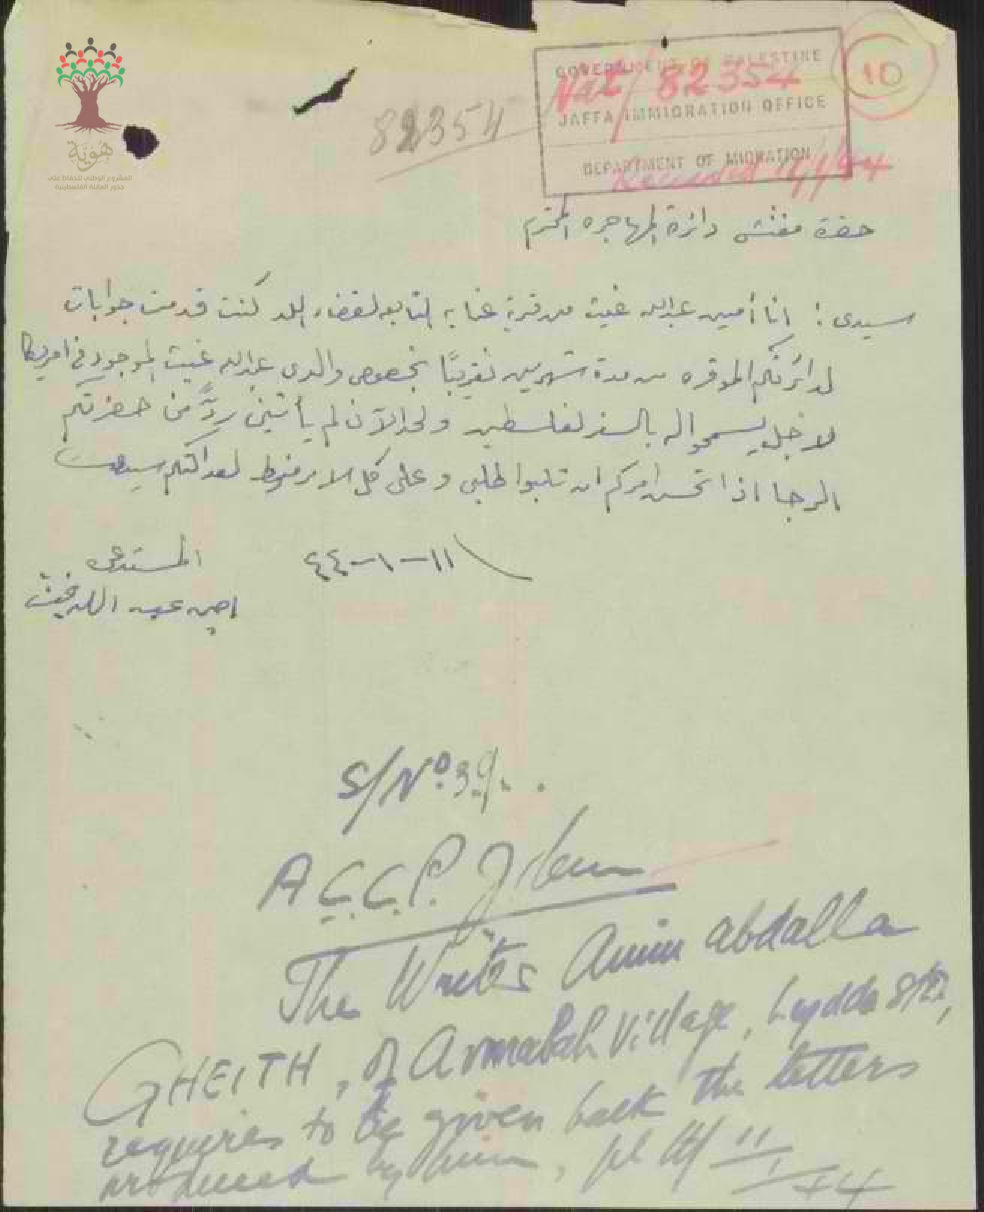 هوية
المشروع الوطني للحفاظ على
جذور العائلة الفلسطينية
82354
GOVERNMENT OF PALESTINE
Nat/ 82354
JAFFA IMMIGRATION OFFICE
DEPARTMENT OF MIGRATION
Received
10
حضرة مفتش دائرة المهاجره المحترم
سيدي : انا أمين عبدالله غيث من قرية عنابه التابعه لقضاء اللد كنت قدمت جوابات
لدائرتكم الموقره من مدة شهرين تقريبًا بخصوص والدي عبدالله غيث الموجود في امريكا
لاجل يسمحوا له بالسفر لفلسطين ولحد الآن لم يأتيني ردٌّ من حضرتكم
الرجا اذا تحسن امركم ان تلبوا طلبي وعلى كل الامر منوط لعدالتكم سيدي
١١-١-٤٤
المستدعي
امين عبد الله غيث
S/No 39.
A.C.C.P.
The Writer Amin abdalla
GHEITH, of Annabah Village, Lydda S/D,
requires to be given back the letters
produced by him, 11/1/44